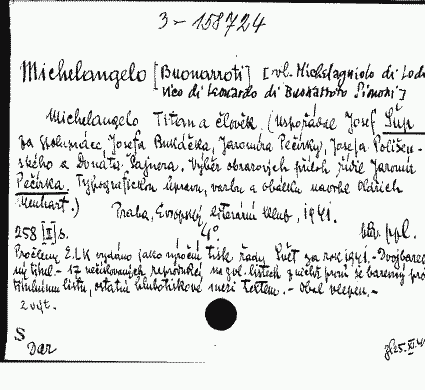 3-158724
Michelangelo [Buonarroti] [vl. Michelagniolo di Lodo-
vico di Leonardo di Buonarroto Simoni]
Michelangelo Titan a člověk. (Uspořádal Josef Šup
za spolupráce Josefa Bukáčka, Jaromíra Pečírky, Josefa Polišen-
ského a Donáta Šajnera. Výběr obrazových příloh řídil Jaromír
Pečírka. Typografickou úpravu, vazbu a obálku navrhl Oldřich
Menhart.)
Praha, Evropský literární klub, 1941.
258 [II] s. 4° obr. příl.
Pro členy E.L.K. vydáno jako výroční tisk řady Svět za rok 1941. - Dvojbarec
ný titul. - 17 nečíslovaných reprodukcí na zvl. listech z nichž první se barevný pro
titulnímu listu, ostatní hlubotiskové mezi textem. - Obal
2 výt.
S
Dar